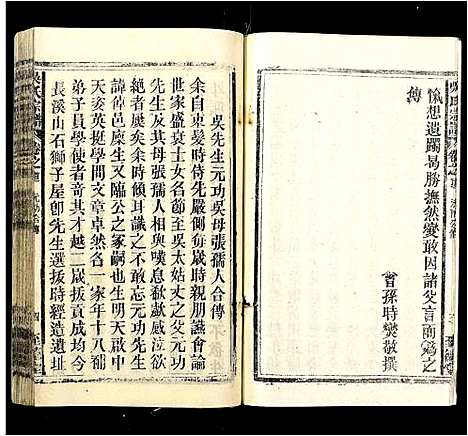 愴想遺躅曷勝撫然爰敢因諸父言而為之
傳
曾孫時爕敬撰
吳先生元功吳母張孺人合傳
余自束髮時侍先嚴側每歲時親朋讌會論
世故盛衰士女名節至吳太姑丈之父元功
先生及其母張孺人相與嘆息欷歔感泣欲
絕者屢矣余時傾耳識之不敢忘元功先生
諱偉邑庠生又臨公之冢嗣也生明天啟中
天姿英挺學問文章卓然各一家年十八補
弟子員學使者奇其才越二歲拔貢成均今
長溪山石獅子屋卽先生選拔時經造遺址